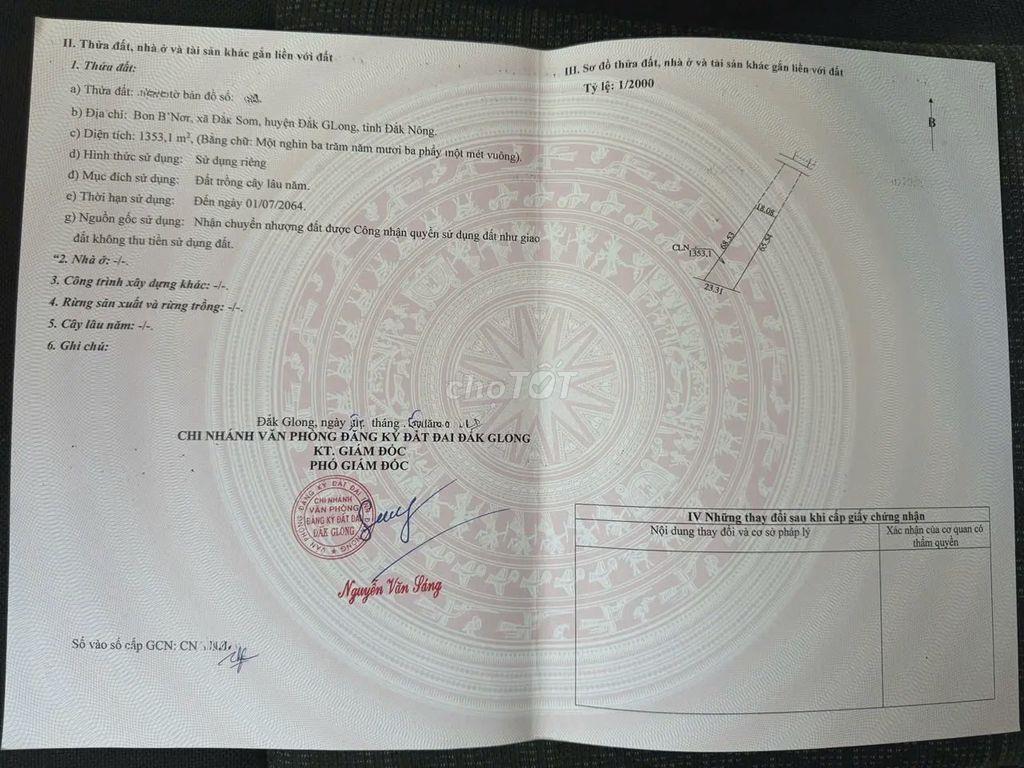 II. Thửa đất, nhà ở và tài sản khác gắn liền với đất
1. Thửa đất:
a) Thửa đất: tờ bản đồ số:
b) Địa chỉ: Bon B'Nơr, xã Đắk Som, huyện Đắk GLong, tỉnh Đắk Nông.
c) Diện tích: 1353,1 m², (Bằng chữ: Một nghìn ba trăm năm mươi ba phẩy một mét vuông).
d) Hình thức sử dụng: Sử dụng riêng
đ) Mục đích sử dụng: Đất trồng cây lâu năm.
e) Thời hạn sử dụng: Đến ngày 01/07/2064.
g) Nguồn gốc sử dụng: Nhận chuyển nhượng đất được Công nhận quyền sử dụng đất như giao
đất không thu tiền sử dụng đất.
"2. Nhà ở: -/-.
3. Công trình xây dựng khác: -/-.
4. Rừng sản xuất và rừng trồng: -/-.
5. Cây lâu năm: -/-.
6. Ghi chú:
Đắk Glong, ngày tháng
CHI NHÁNH VĂN PHÒNG ĐĂNG KÝ ĐẤT ĐAI ĐẮK GLONG
KT. GIÁM ĐỐC
PHÓ GIÁM ĐỐC
CHI NHÁNH
VĂN PHÒNG
ĐĂNG KÝ ĐẤT ĐAI
ĐẮK GLONG
Nguyễn Văn Sáng
Số vào sổ cấp GCN: CN
III. Sơ đồ thửa đất, nhà ở và tài sản khác gắn liền với đất
Tỷ lệ: 1/2000
B
18.08
68.53
65.54
CLN
1353,1
23.31
choTỐT
IV Những thay đổi sau khi cấp giấy chứng nhận
Nội dung thay đổi và cơ sở pháp lý
Xác nhận của cơ quan có
thẩm quyền